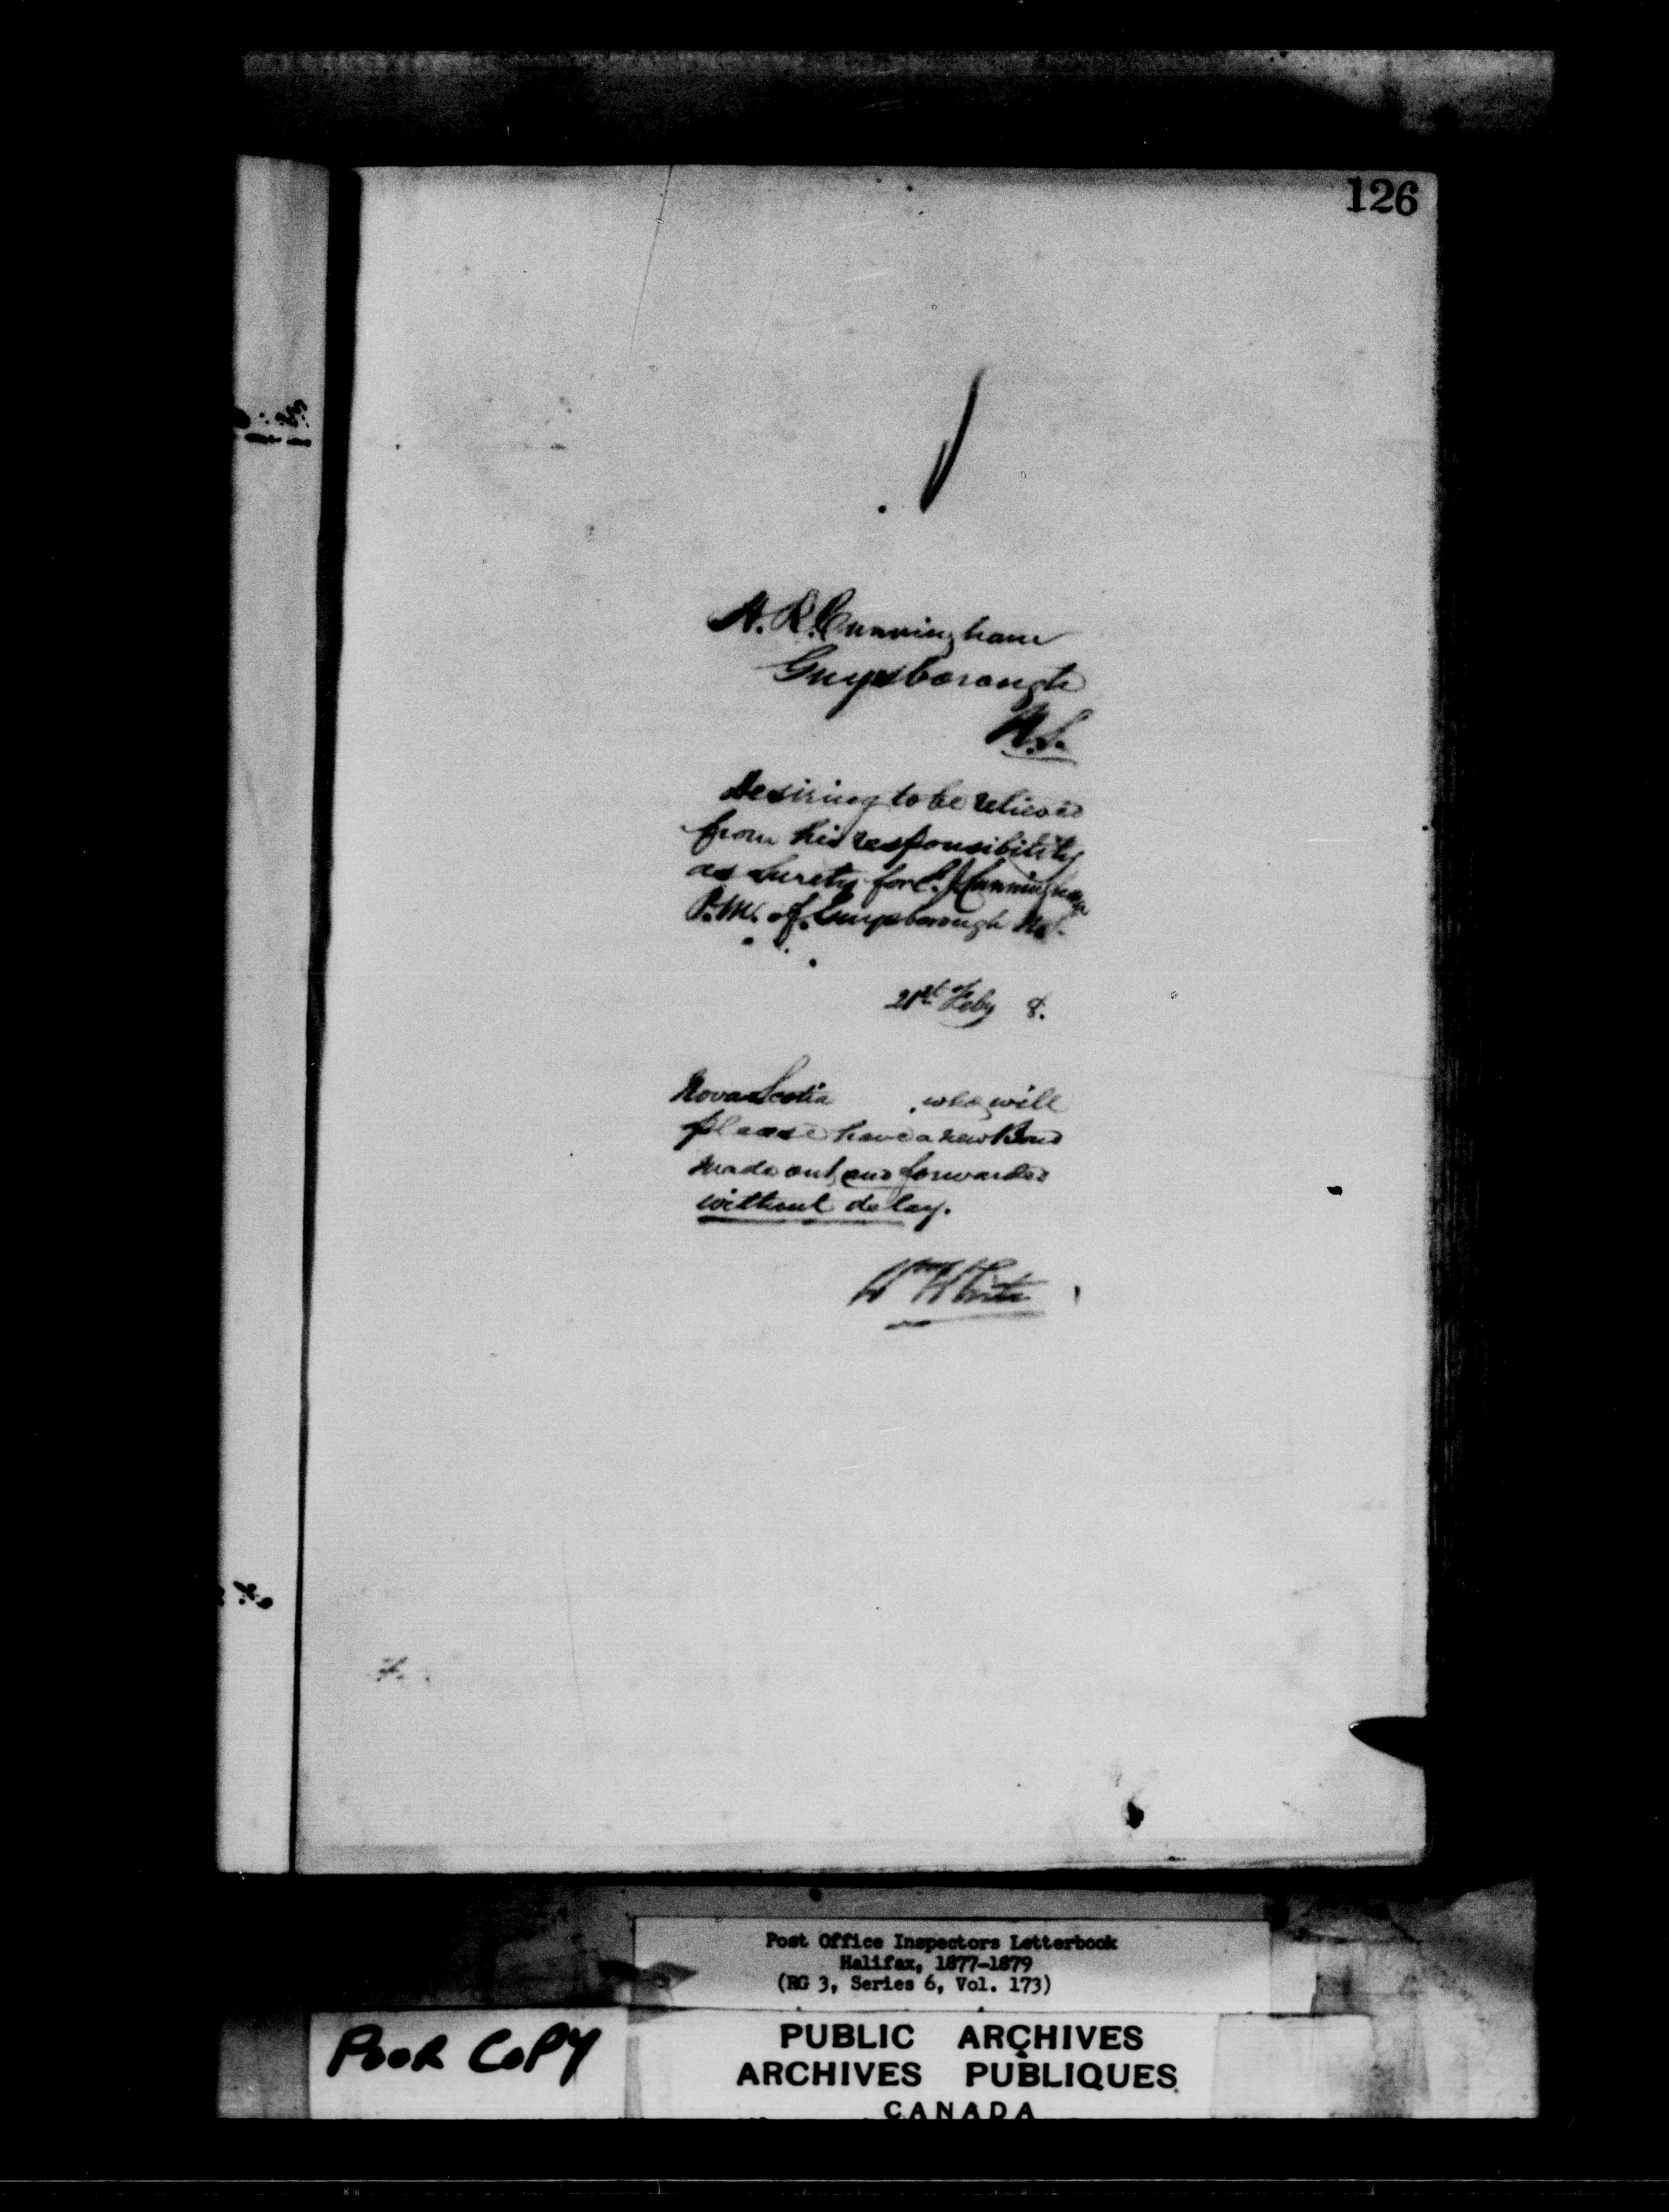 126
A. R. Cunningham
Guysborough
N.S.
desiring to be relieved
from his responsibility
as surety for C. J. Cunningham
P.M. of Guysborough N.S.
21st Feby 8.
Nova Scotia , who will
please have a new Bond
made out and forwarded
without delay.
Wm White
Post Office Inspectors Letterbook
Halifax, 1877-1879
(RG 3, Series 6, Vol. 173)
POOR COPY
PUBLIC ARCHIVES
ARCHIVES PUBLIQUES
CANADA